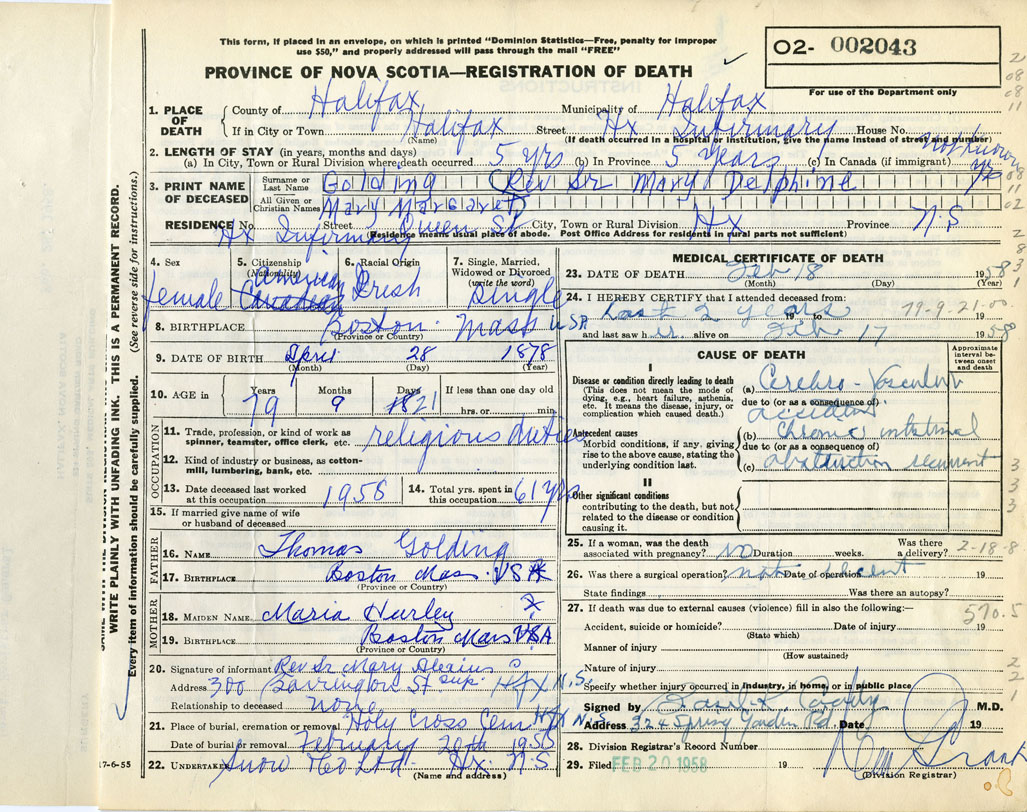 This form, if placed in an envelope, on which is printed "Dominion Statistics—Free, penalty for improper
use $50," and properly addressed will pass through the mail "FREE"
O2- 002043
For use of the Department only
PROVINCE OF NOVA SCOTIA—REGISTRATION OF DEATH
1. PLACE OF DEATH
County of Halifax Municipality of Halifax
If in City or Town Halifax Street Hx Infirmary House No.
(Name) (If death occurred in a hospital or institution, give the name instead of street and number)
2. LENGTH OF STAY (in years, months and days)
(a) In City, Town or Rural Division where death occurred 5 yrs (b) In Province 5 years (c) In Canada (if immigrant) not known yrs
3. PRINT NAME OF DECEASED
Surname or Last Name Golding (Rev Sr Mary Delphine
All Given or Christian Names Mary Margaret)
RESIDENCE No. Hx Infirmary Street Queen St City, Town or Rural Division Hx Province N.S
(Residence means usual place of abode. Post Office Address for residents in rural parts not sufficient)
4. Sex female
5. Citizenship (Nationality) American Canadian
6. Racial Origin Irish
7. Single, Married, Widowed or Divorced (write the word) Single
8. BIRTHPLACE Boston Mass USA
(Province or Country)
9. DATE OF BIRTH April 28 1878
(Month) (Day) (Year)
10. AGE in Years 79 Months 9 Days 21 If less than one day old
hrs. or min.
OCCUPATION
11. Trade, profession, or kind of work as spinner, teamster, office clerk, etc. religious duties
12. Kind of industry or business, as cotton-mill, lumbering, bank, etc.
13. Date deceased last worked at this occupation 1956
14. Total yrs. spent in this occupation 61 yrs
15. If married give name of wife or husband of deceased
FATHER
16. NAME Thomas Golding
17. BIRTHPLACE Boston Mass. USA
(Province or Country)
MOTHER
18. MAIDEN NAME Maria Hurley
19. BIRTHPLACE Boston Mass USA
(Province or Country)
20. Signature of informant Rev Sr Mary Alexius
Address 300 Barrington St Hfx N.S.
Relationship to deceased none
21. Place of burial, cremation or removal Holy Cross Cem Hfx N.S.
Date of burial or removal February 20th 1958
22. UNDERTAKER Snow & Co Ltd Hx. N.S
(Name and address)
MEDICAL CERTIFICATE OF DEATH
23. DATE OF DEATH Feb 18 1958
(Month) (Day) (Year)
24. I HEREBY CERTIFY that I attended deceased from: 79-9-21-00
Last 2 years 19 to 19
and last saw her alive on Feb 17 1958
CAUSE OF DEATH
Approximate interval between onset and death
I
Disease or condition directly leading to death
(This does not mean the mode of dying, e.g., heart failure, asthenia, etc. It means the disease, injury, or complication which caused death.)
(a) Cerebro-Vascular
due to (or as a consequence of)
accident
Antecedent causes
Morbid conditions, if any, giving rise to the above cause, stating the underlying condition last.
(b) Chronic intestinal
due to (or as a consequence of)
(c) obstruction recurrent
II
Other significant conditions
contributing to the death, but not related to the disease or condition causing it.
25. If a woman, was the death associated with pregnancy? No Duration weeks. Was there a delivery? 2-18-8
26. Was there a surgical operation? not recent Date of operation 19
State findings Was there an autopsy?
27. If death was due to external causes (violence) fill in also the following:—
570.5
Accident, suicide or homicide? Date of injury 19
(State which)
Manner of injury
(How sustained)
Nature of injury
Specify whether injury occurred in industry, in home, or in public place
Signed by M.D.
Address 324 Spring Garden Rd. Date 19
28. Division Registrar's Record Number
29. Filed FEB 20 1958 19
(Division Registrar)
WRITE PLAINLY WITH UNFADING INK. THIS IS A PERMANENT RECORD.
Every item of information should be carefully supplied. (See reverse side for instructions.)
17-6-55